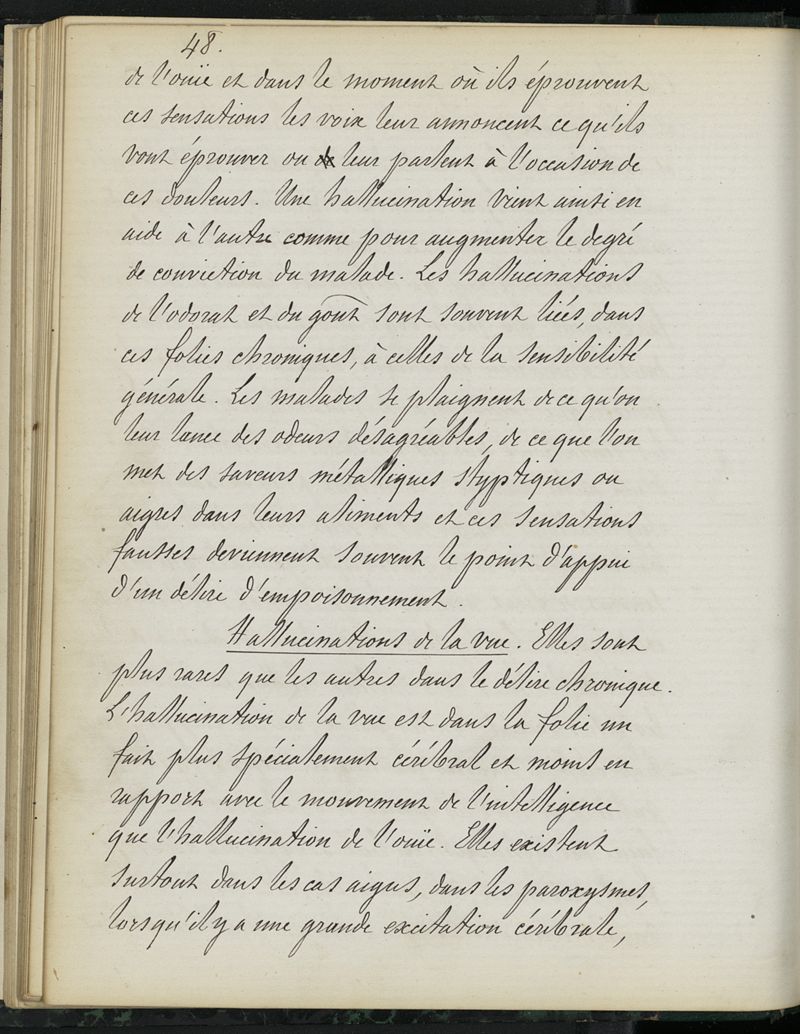 48.
de l'ouïe et dans le moment où ils éprouvent
ces sensations les voix leur annoncent ce qu'ils
vont éprouver ou de leur parlent à l'occasion de
ces douleurs. Une hallucination vient ainsi en
aide à l'autre comme pour augmenter le degré
de conviction du malade. Les hallucinations
de l'odorat et du goût sont souvent liées, dans
ces folies chroniques, à celles de la sensibilité
générale. Les malades se plaignent de ce qu'on
leur lance des odeurs désagréables, de ce que l'on
met des saveurs métalliques styptiques ou
aigres dans leurs aliments et ces sensations
fausses deviennent souvent le point d'appui
d'un délire d'empoisonnement.
Hallucinations de la vue. Elles sont
plus rares que les autres dans le délire chronique.
L'hallucination de la vue est dans la folie un
fait plus spécialement cérébral et moins en
rapport avec le mouvement de l'intelligence
que l'hallucination de l'ouïe. Elles existent
surtout dans les cas aigus, dans les paroxysmes,
lorsqu'il y a une grande excitation cérébrale,